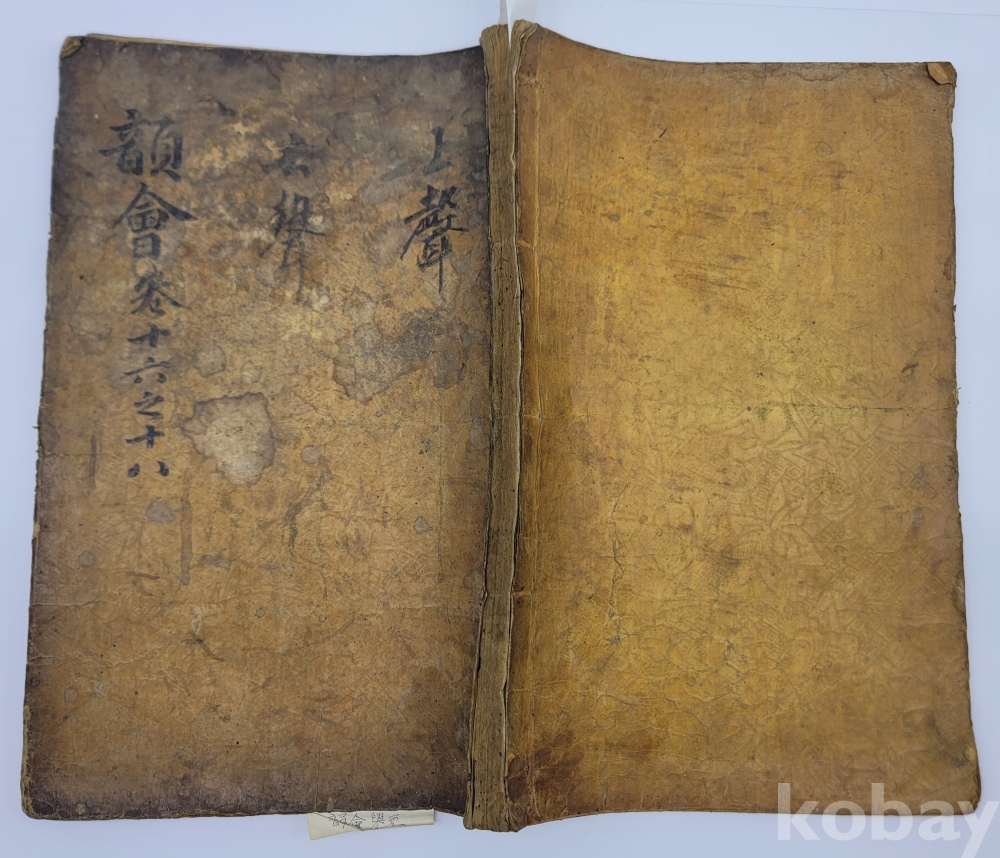 上聲
去聲
韻會卷十六之十八
韻會擧要
kobay